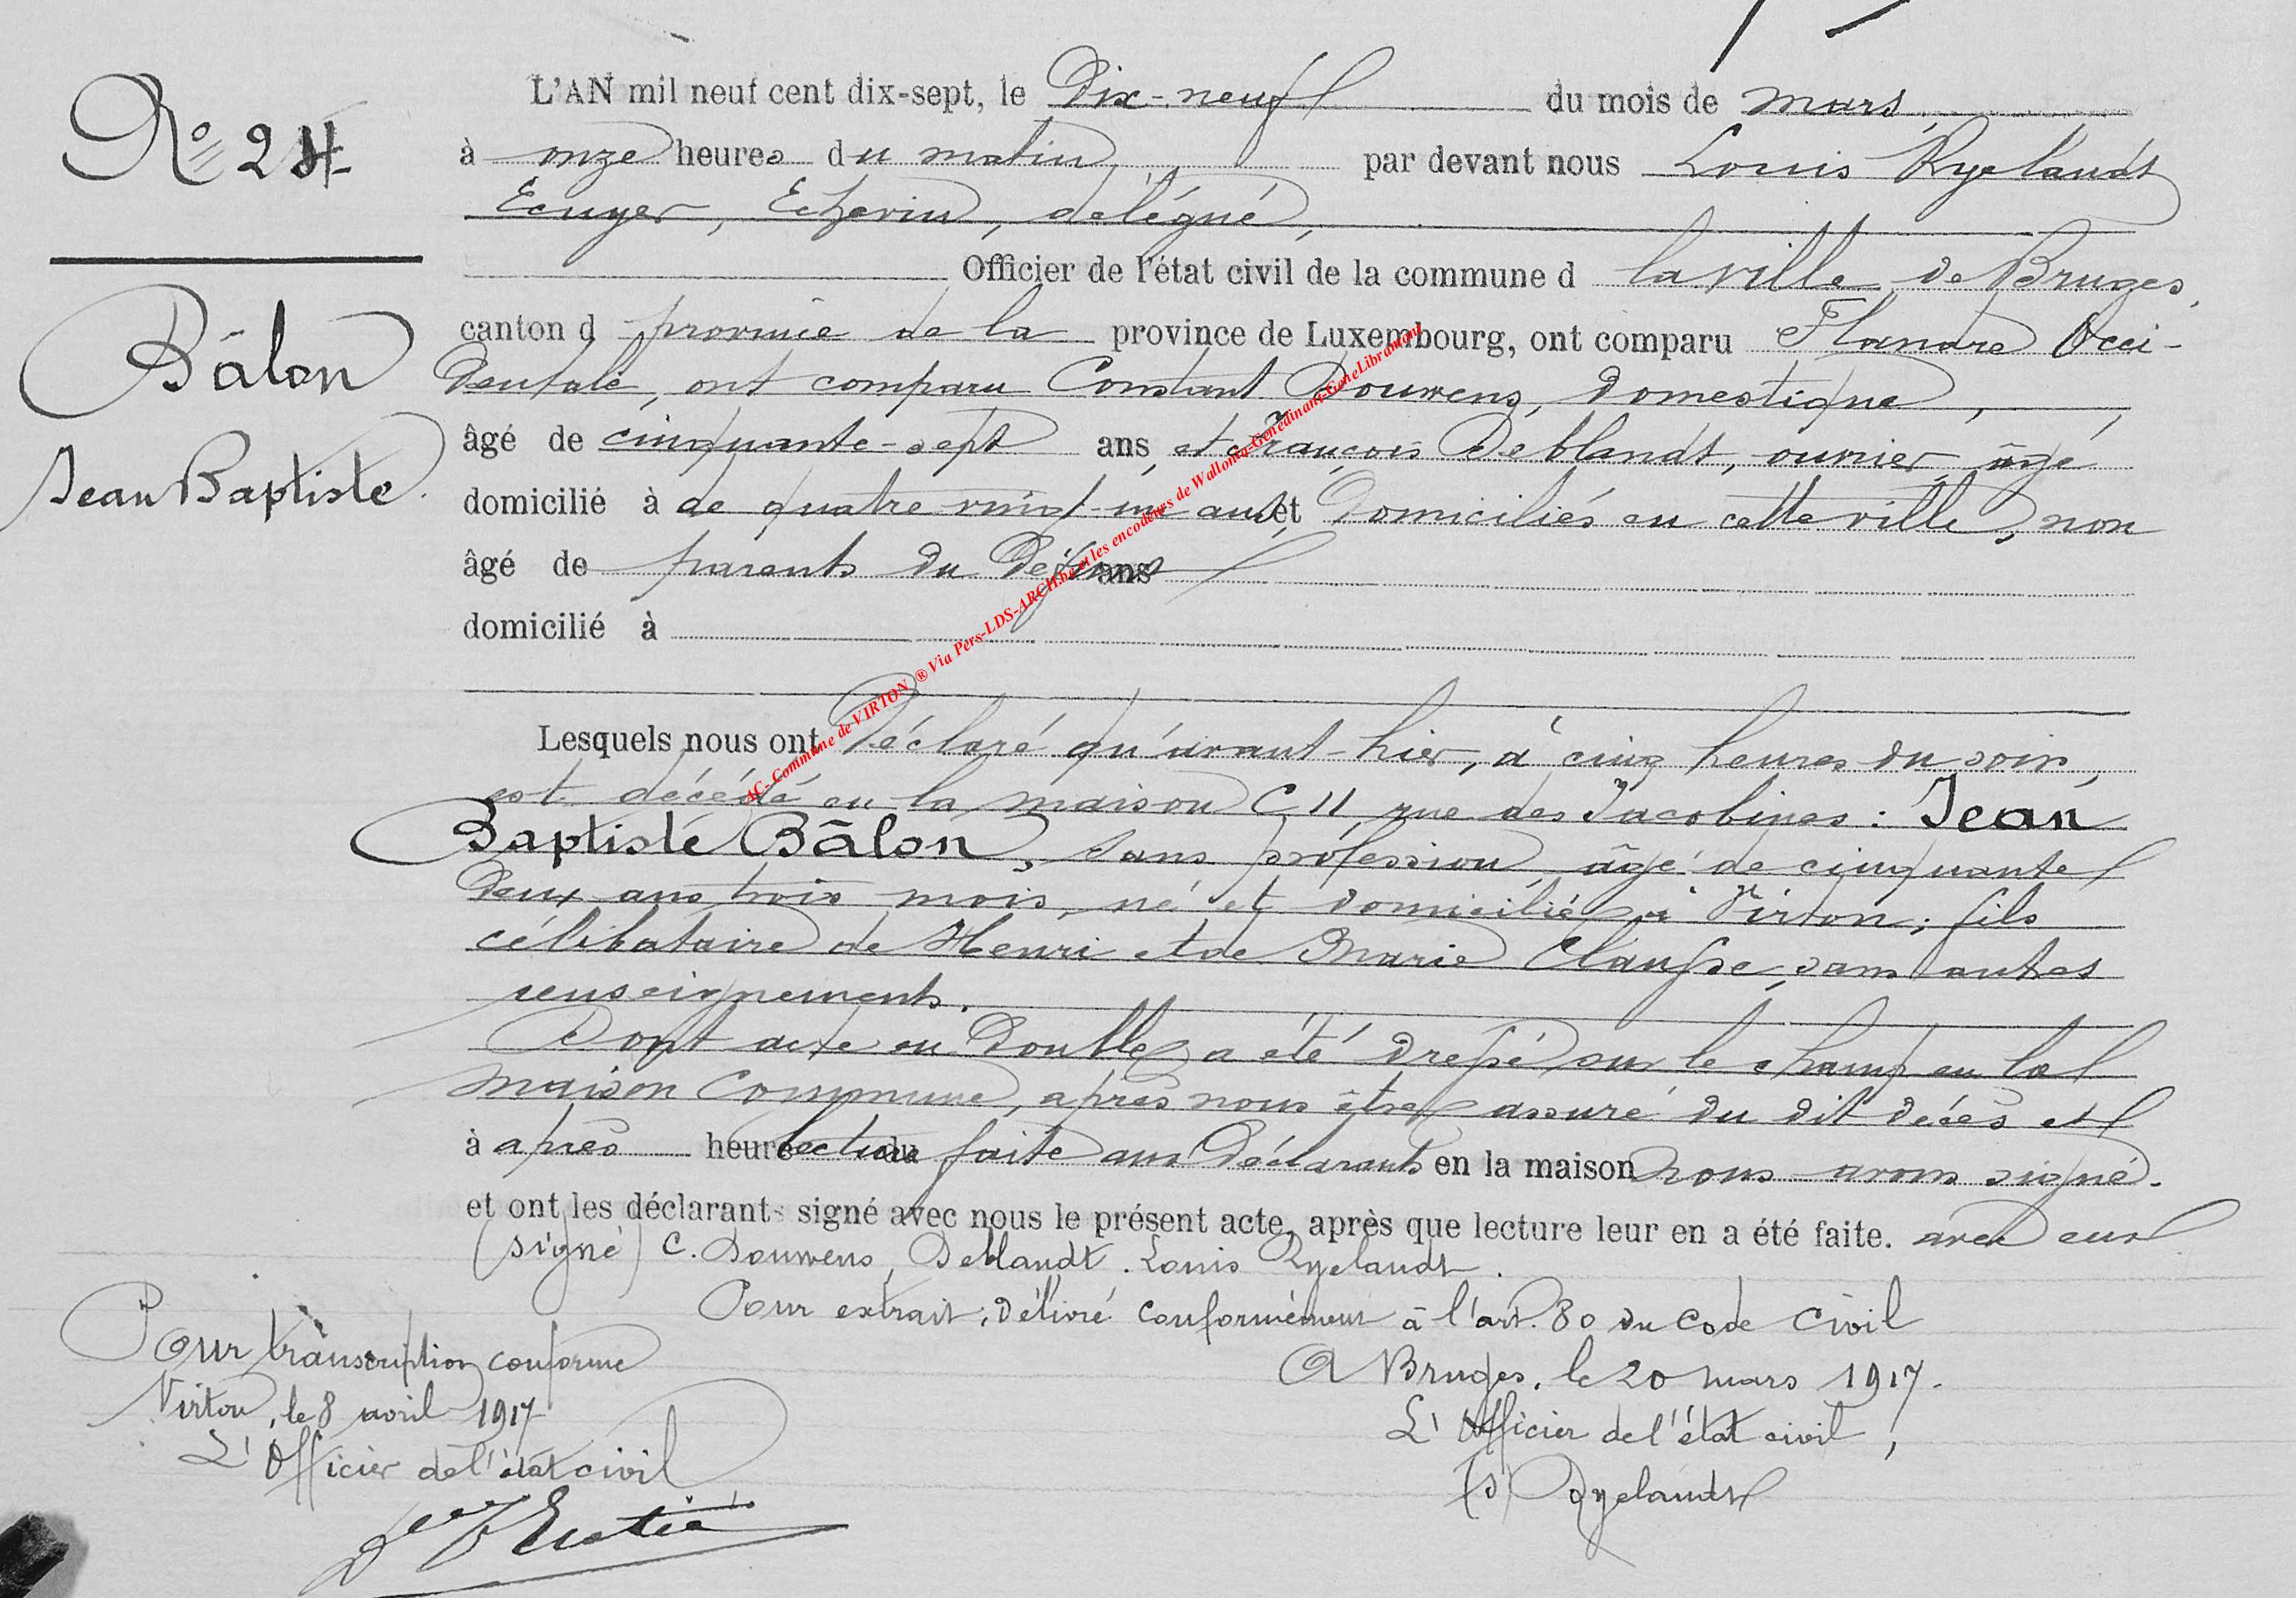 L'AN mil neuf cent dix-sept, le Dix-neuf du mois de mars,
No 24
à onze heures du matin, par devant nous Louis Ryelandt
Ecuyer, Echevin, délégué,
Officier de l'état civil de la commune d la ville de Bruges,
Bâlon
Jean Baptiste.
canton d province de la province de Luxembourg, ont comparu Flandre Occi-
dentale, ont comparu Constant Douwens, domestique,
âgé de cinquante-sept ans, et François Deblandt, ouvrier, âgé
domicilié à de quatre vingt-un ans, et Domiciliés en cette ville, non
âgé de parents du Défunt ans
domicilié à
Lesquels nous ont Déclaré qu'avant-hier, à cinq heures du soir,
est décédé en la maison C 11 rue des Jacobines : Jean
Baptiste Bâlon, sans profession, âgé de cinquante
Deux ans trois mois, né et domicilié à Virton; fils
célibataire de Henri et de Marie Clausse, sans autres
renseignements.
Dont acte en Double a été dressé sur le champ en la
maison Commune, après nous être assuré du dit décès et
à après heure lecture du faite aux Déclarants en la maison nous avons signé.
et ont les déclarants signé avec nous le présent acte, après que lecture leur en a été faite. avec eux
(signé) C. Douwens, Deblandt. Louis Ryelandt.
Pour extrait, délivré conformément à l'art. 80 du Code Civil
A Bruges, le 20 mars 1917.
L'Officier de l'état civil,
(s) Ryelandt
Pour transcription conforme
Virton, le 8 avril 1917
L'Officier de l'état civil
AC- Commune de VIRTON ® Via Pers-LDS-ARCH.be et les encodeurs de Wallonia-Genedinant-GeneLibramont